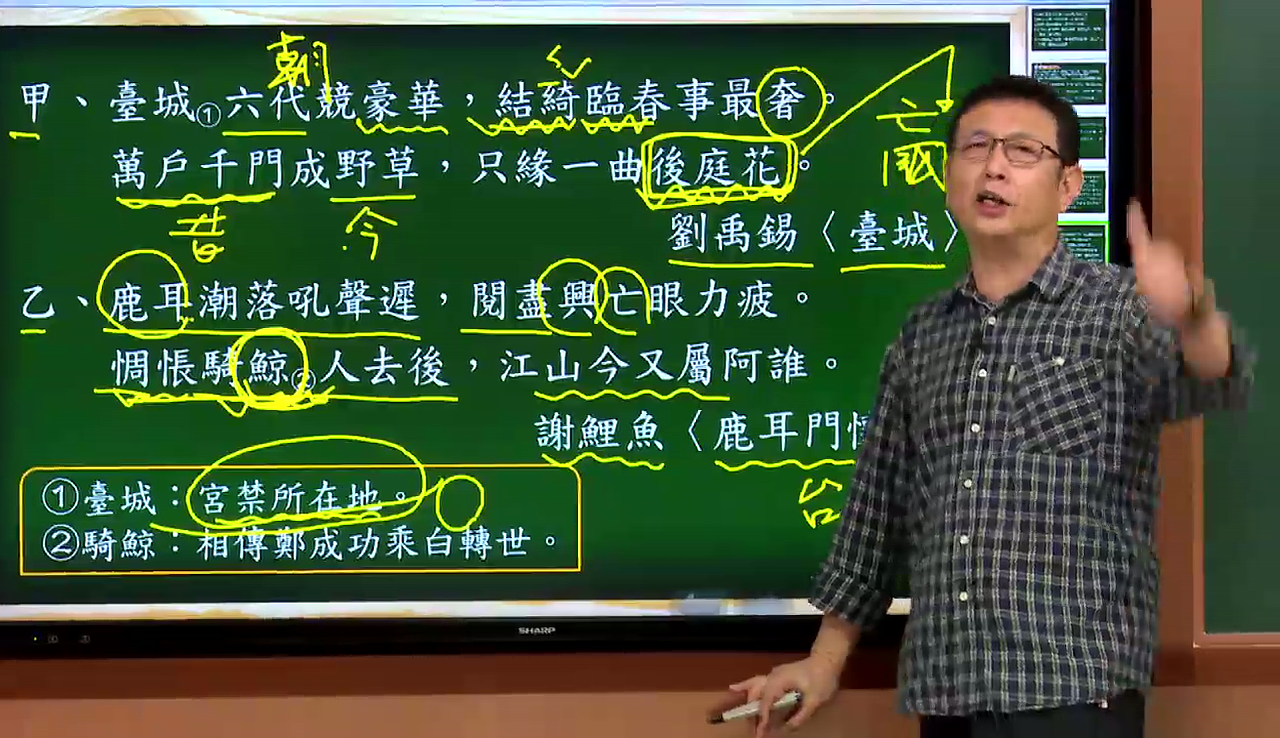 朝
甲、臺城①六代競豪華，結綺臨春事最奢。
亡國
萬戶千門成野草，只緣一曲後庭花。
昔 今
劉禹錫〈臺城〉
乙、鹿耳潮落吼聲遲，閱盡興亡眼力疲。
惆悵騎鯨②人去後，江山今又屬阿誰。
謝鯉魚〈鹿耳門
台
①臺城：宮禁所在地。
②騎鯨：相傳鄭成功乘白轉世。
SHARP